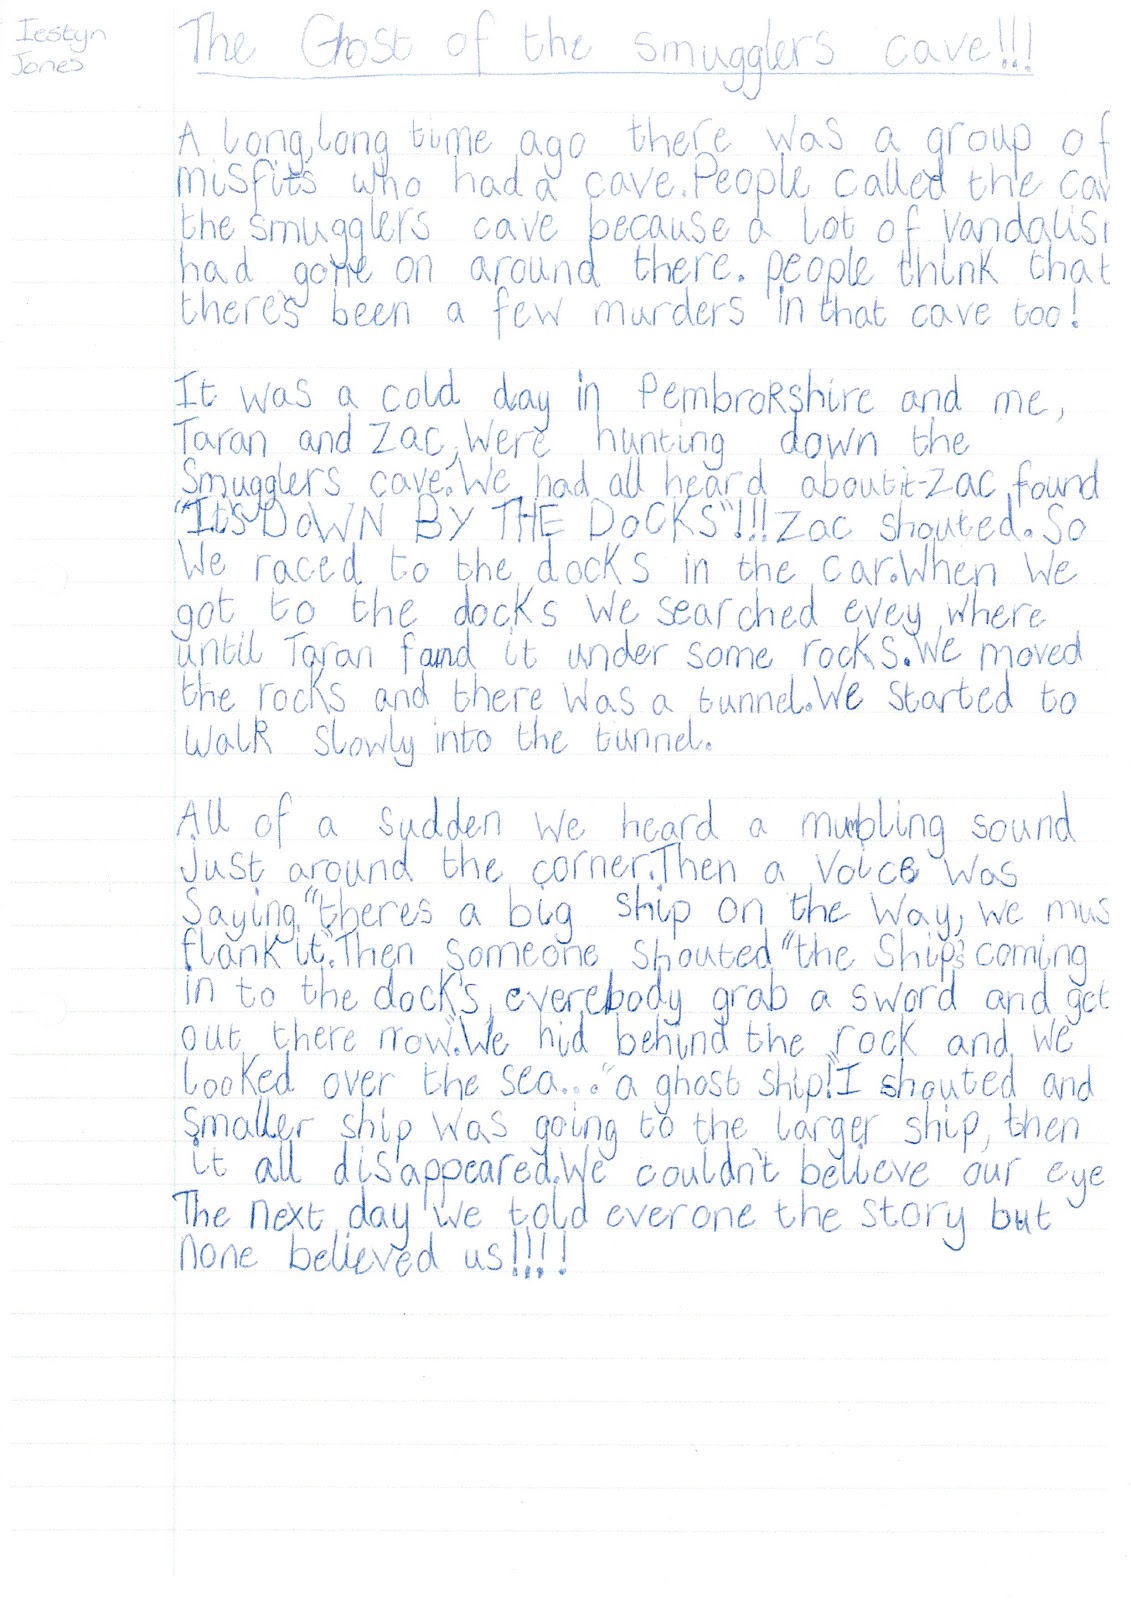 Iestyn
Jones
The Ghost of the smugglers cave!!!
A long,long time ago there was a group of
misfits who had a cave.People called the cav
the smugglers cave because a lot of vandalis
had gone on around there. people think that
there's been a few murders in that cave too!
It was a cold day in Pembrokshire and me,
Taran and Zac, were hunting down the
smugglers cave.We had all heard about it-Zac found
"It's DOWN BY THE DOCKS"!!! Zac shouted. So
we raced to the docks in the car.When we
got to the docks we searched evey where
until Taran fand it under some rocks.We moved
the rocks and there was a tunnel.We started to
walk slowly into the tunnel.
All of a sudden we heard a mumbling sound
just around the corner.Then a voice was
saying "theres a big ship on the way, we mus
flank it".Then someone shouted "the ship's coming
in to the docks, everebody grab a sword and get
out there now".We hid behind the rock and we
looked over the sea..."a ghost ship!"I shouted and
smaller ship was going to the larger ship, then
it all disappeared.We couldn't believe our eye
The next day we told everone the story but
none believed us!!!!